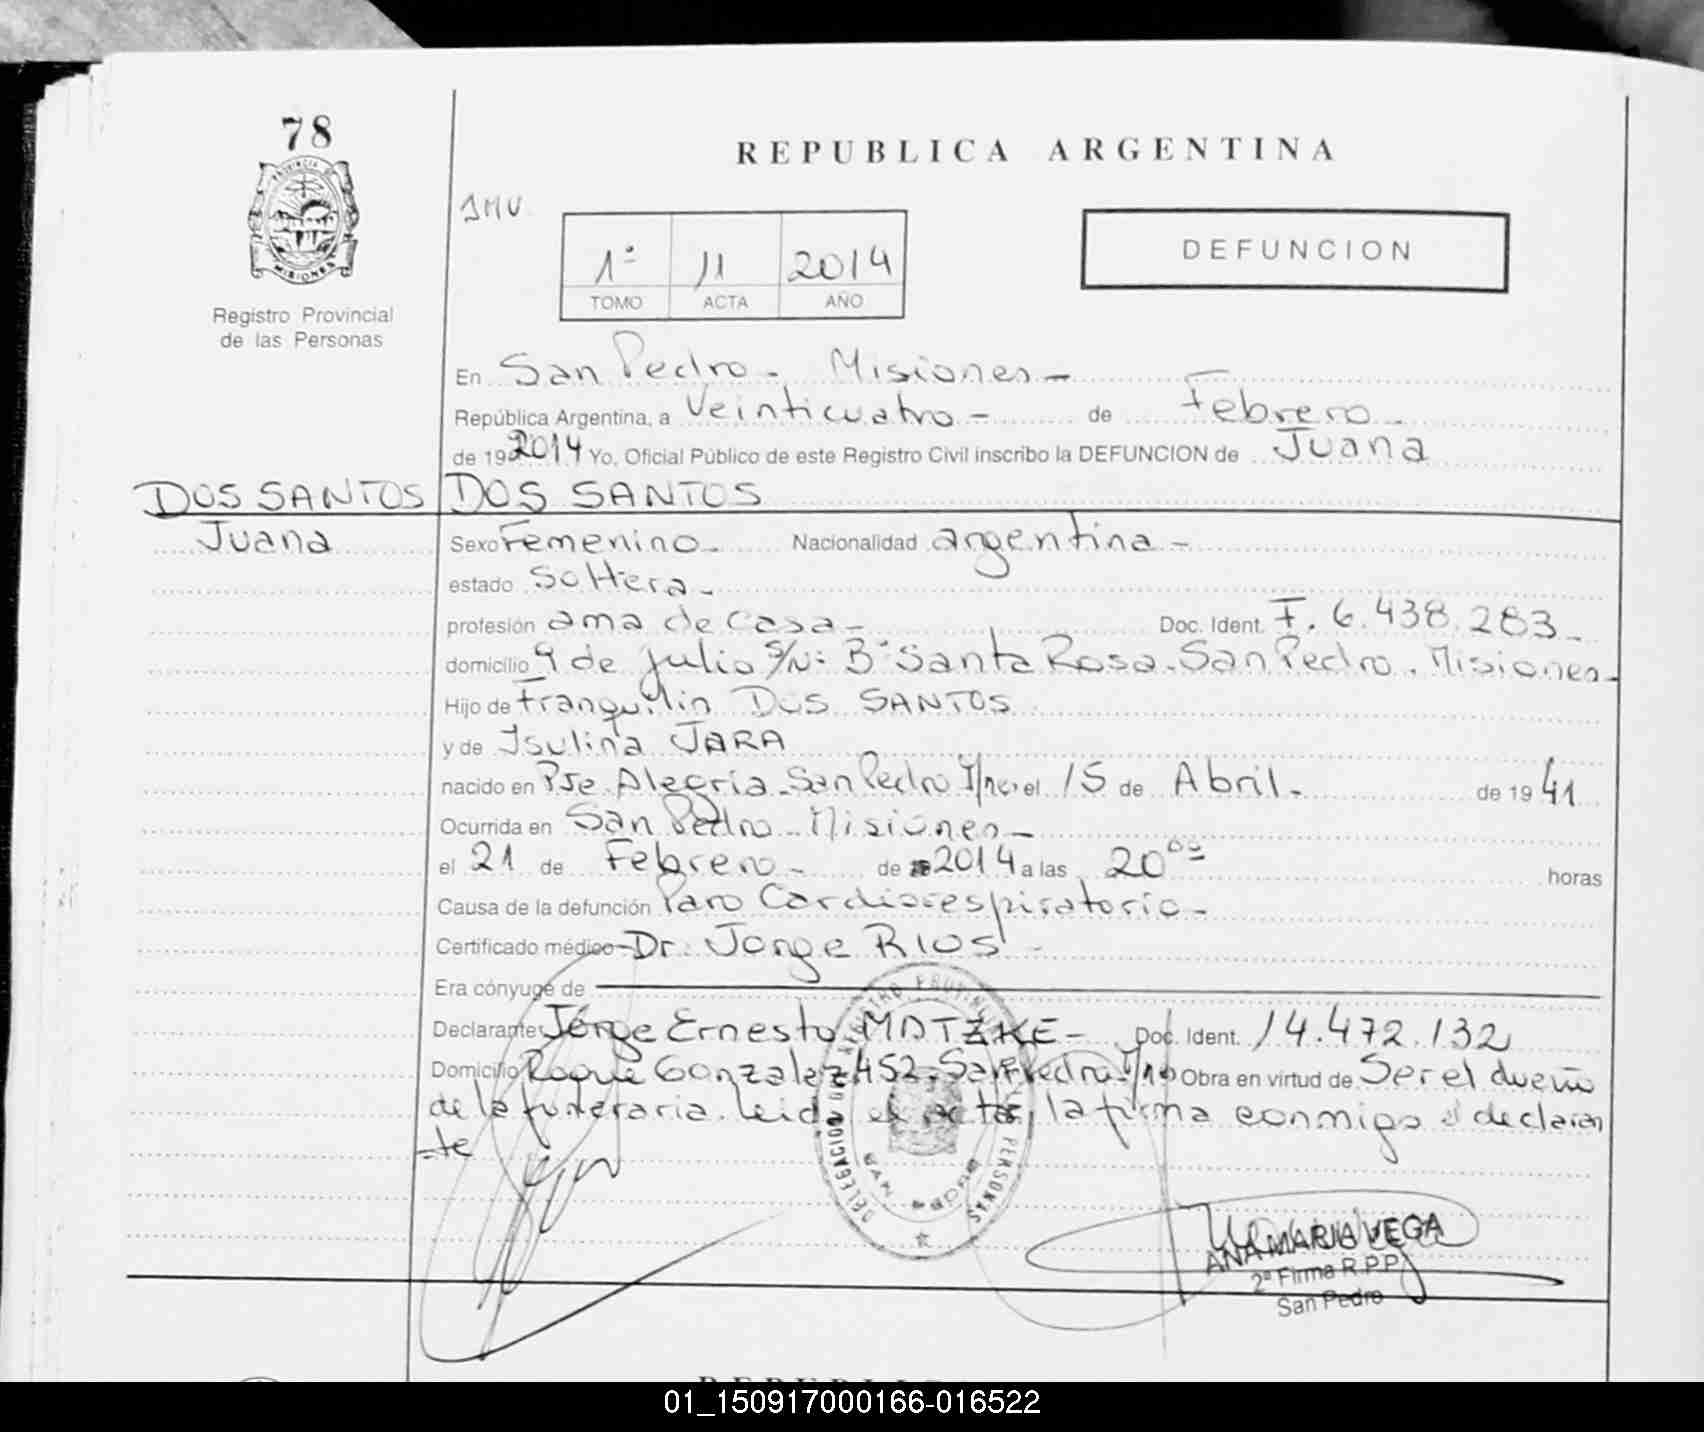 78
PROVINCIA DE
MISIONES
Registro Provincial
de las Personas
REPUBLICA ARGENTINA
JMV
1º 11 2014
TOMO ACTA AÑO
DEFUNCION
En San Pedro - Misiones -
República Argentina, a Veinticuatro - de Febrero -
de 19 2014 Yo, Oficial Público de este Registro Civil inscribo la DEFUNCION de Juana
DOS SANTOS DOS SANTOS
Juana
Sexo Femenino - Nacionalidad argentina -
estado Soltera -
profesión ama de casa - Doc. Ident. F. 6.438.283 -
domicilio 9 de julio S/Nº Bº Santa Rosa - San Pedro - Misiones -
Hijo de Franquilin DOS SANTOS
y de Isulina JARA
nacido en Pje Alegría - San Pedro Mnes el 15 de Abril - de 19 41
Ocurrida en San Pedro - Misiones -
el 21 de Febrero - de 2014 a las 20 00 horas
Causa de la defunción Paro Cardiorespiratorio -
Certificado médico - Dr. Jorge RIOS -
Era cónyuge de
Declarante: Jorge Ernesto MATZKE - Doc. Ident. 14.472.132
Domicilio Roque Gonzalez 452 - San Pedro Mnes Obra en virtud de Ser el dueño
de la funeraria. Leida el acta, la firma conmigo el declaran
-te
DELEGACION REGISTRO PROVINCIAL PERSONAS
SAN PEDRO
ANA MARIA VEGA
2ª Firma R.P.P.
San Pedro
01_150917000166-016522